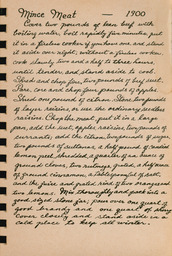 Mince Meat — 1900
Cover two pounds of lean beef with
boiling water, boil rapidly five minutes, put
it in a fireless cooker if you have one, and stand
it aside over night, without a fireless cooker,
cook slowly two and a half to three hours
until tender, and stand aside to cool.
Shred and chop fine, two pounds of beef suet.
Pare, core and chop four pounds of apples.
Shred one pound of citron. Use two pounds
of layer raisins, or use the ordinary seedless
raisins. Chop the meat, put it in a large
pan, add the suet, apples, raisins, two pounds of
currants, add the citron, two pounds of sugar,
two pounds of sultanas, a half pound of candied
lemon peel, shredded, a quarter of an ounce of
ground cloves, two nutmegs, grated, a half ounce
of ground cinnamon, a tablespoonful of salt,
and the juice and grated rind of two oranges and
two lemons. Mix thoroughly and pack into a
good sized stone jar; pour over one quart of
good brandy and one quart of sherry
Cover closely and stand aside in a
cold place to keep all winter.